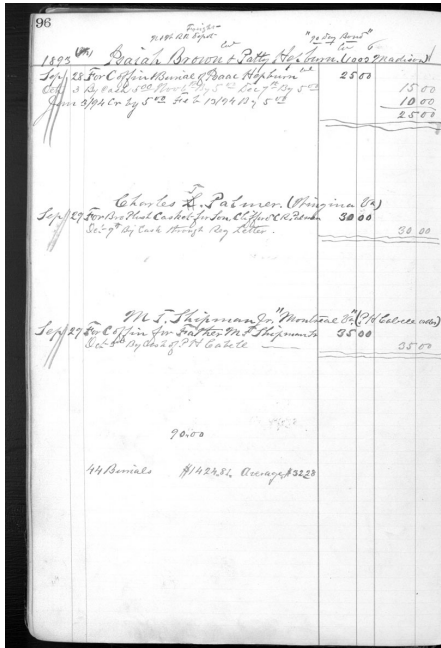 96
Freight
R.R. Depot "90 day Bond"
1893 Isaiah Brown & Patty Hepburn (1002 Madison)
Sep 28 For Coffin & Burial of Isaac Hepburn 25 00
Oct 3 By Cash 5.00 Nov By 5.00 Dec 7th By 5.00 15 00
Jany 3/94 Cr by 5.00 Feb 13/94 By 5.00 10 00
25 00
Charles T. Palmer. (Wingina Va)
Sep 29 For Bro Plush Casket for Son Clifford C.R. Palmer 30 00
Dec 9th By Cash through Reg Letter. 30 00
M T. Shipman Jr. "Montreal Va" (P H Cabell)
Sep 27 For Coffin for Father M T Shipman Sr 35 00
By Cash of P H Cabell 35 00
90.00
44 Burials $1424.82 Average $32.28